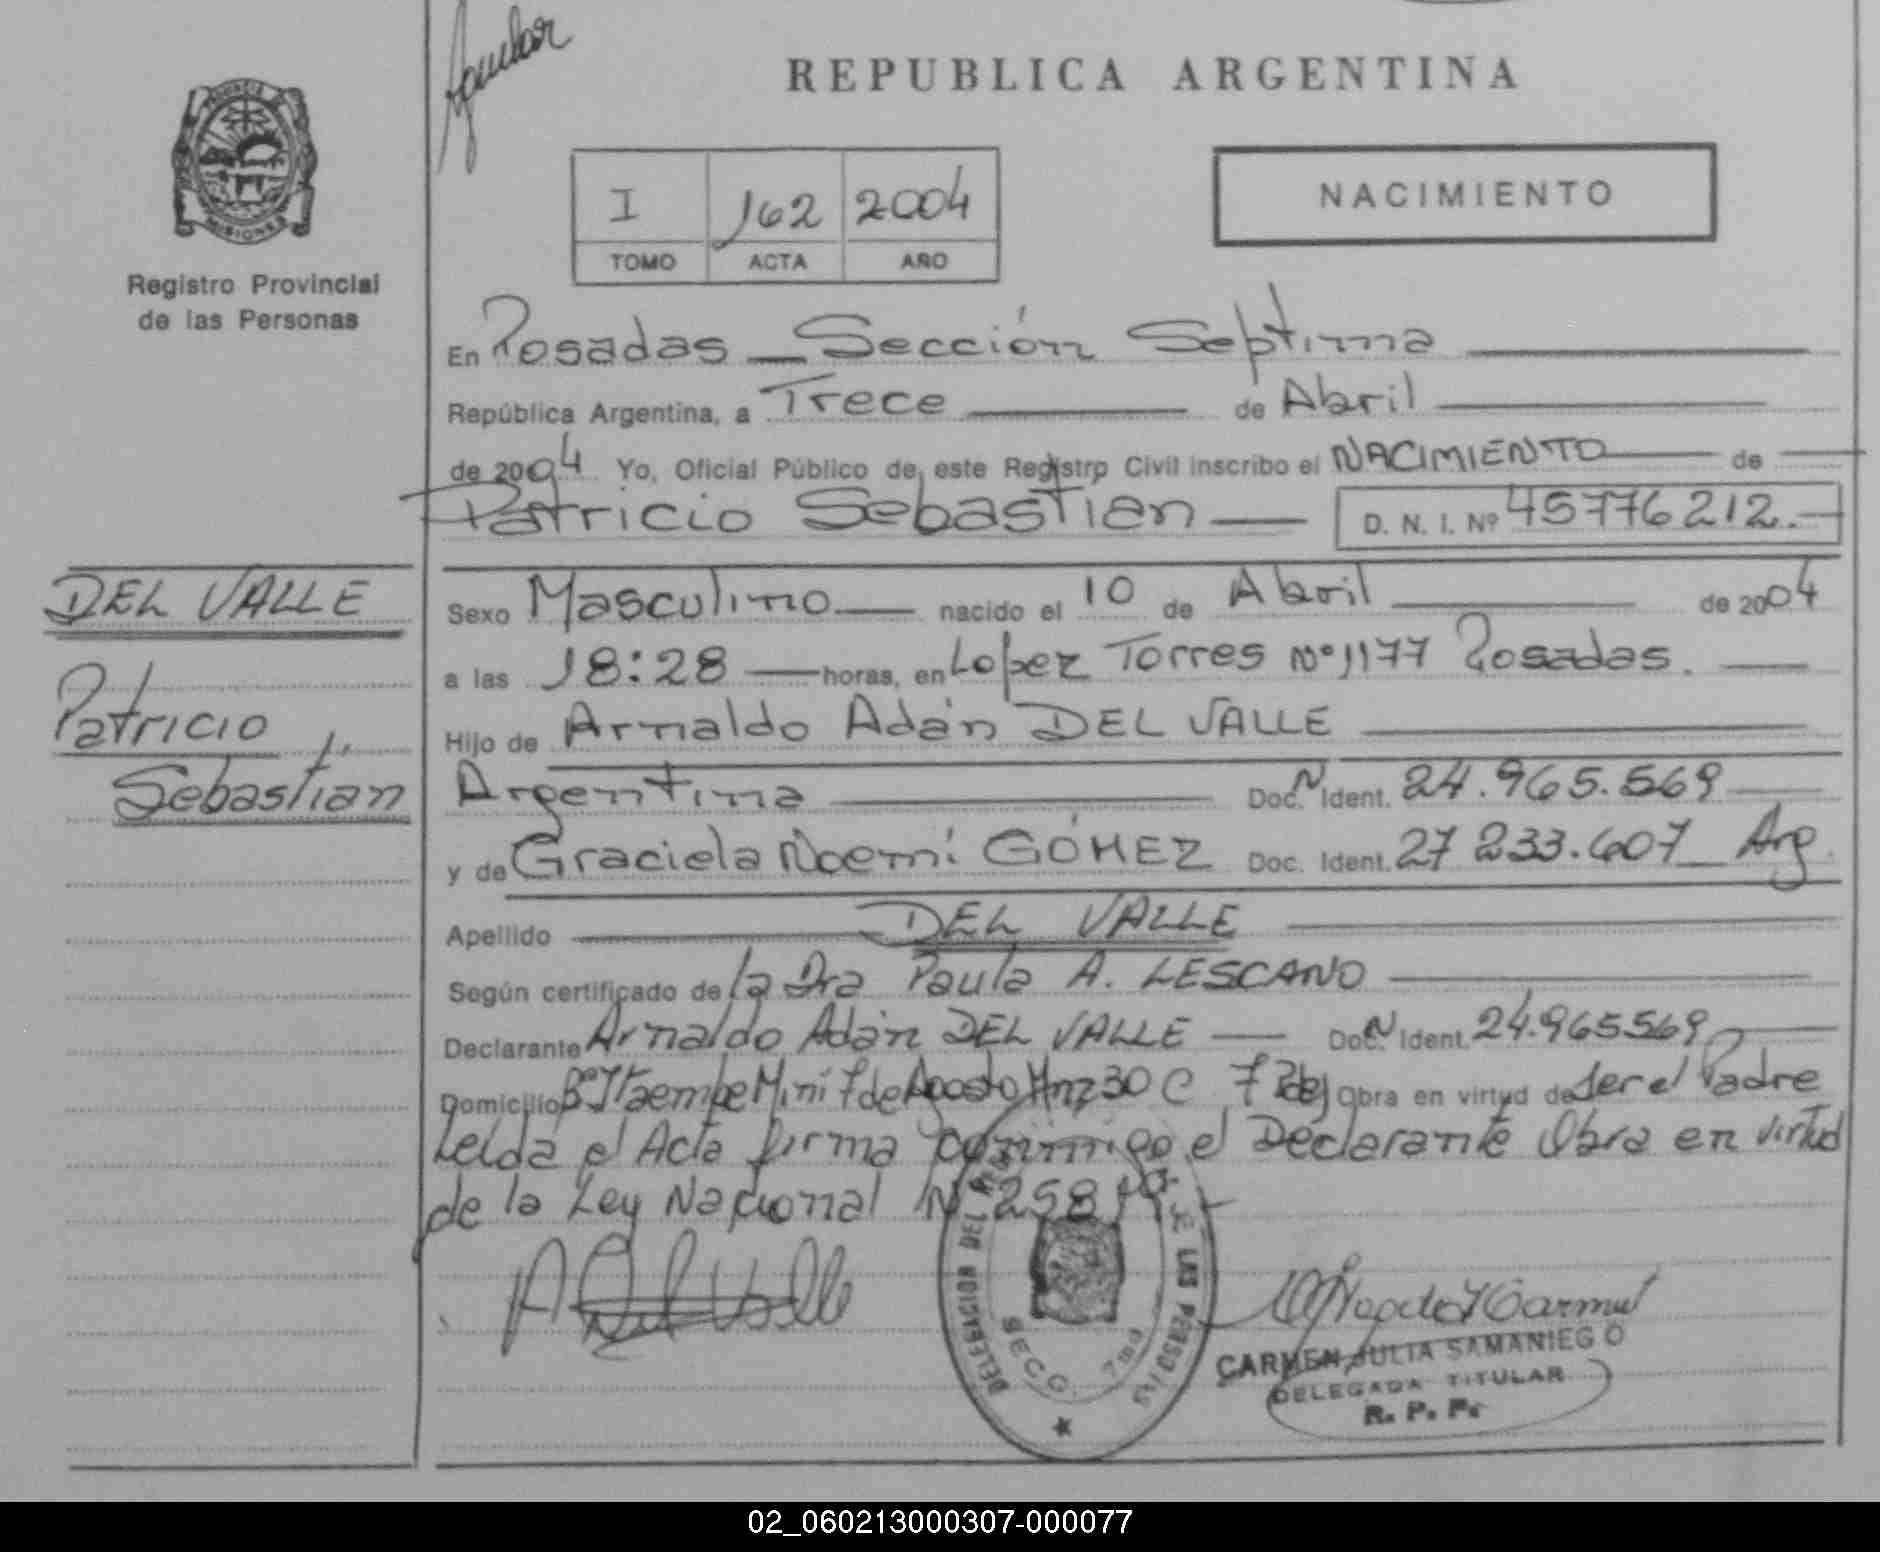 Aguilar
REPUBLICA ARGENTINA
PROVINCIA DE
MISIONES
Registro Provincial
de las Personas
I 162 2004
TOMO ACTA AÑO
NACIMIENTO
En Posadas — Sección Septima
República Argentina, a Trece de Abril
de 2004 Yo, Oficial Público de este Registro Civil inscribo el NACIMIENTO de
Patricio Sebastián D. N. I. Nº 45776212.-
DEL VALLE
Patricio
Sebastián
Sexo Masculino nacido el 10 de Abril de 2004
a las 18:28 horas, en Lopez Torres Nº 1177 Posadas.
Hijo de Arnaldo Adán DEL VALLE
Argentina Doc. N Ident. 24.965.569
y de Graciela Noemí GÓMEZ Doc. Ident. 27 233.607 Arg
Apellido DEL VALLE
Según certificado de la Dra Paula A. LESCANO
Declarante Arnaldo Adán DEL VALLE Doc. N Ident. 24.965569
Domicilio Bº Itaembe Mini 7 de Agosto Mnz 30 C 7 Obra en virtud de ser el Padre
Leída el Acta firma conmigo el Declarante Obra en virtud
de la Ley Nacional Nº
A Del Valle
DELEGACION DEL LAS PERSONAS
SECC. 7ma
CARMEN JULIA SAMANIEGO
DELEGADA TITULAR
R. P. P.
02_060213000307-000077